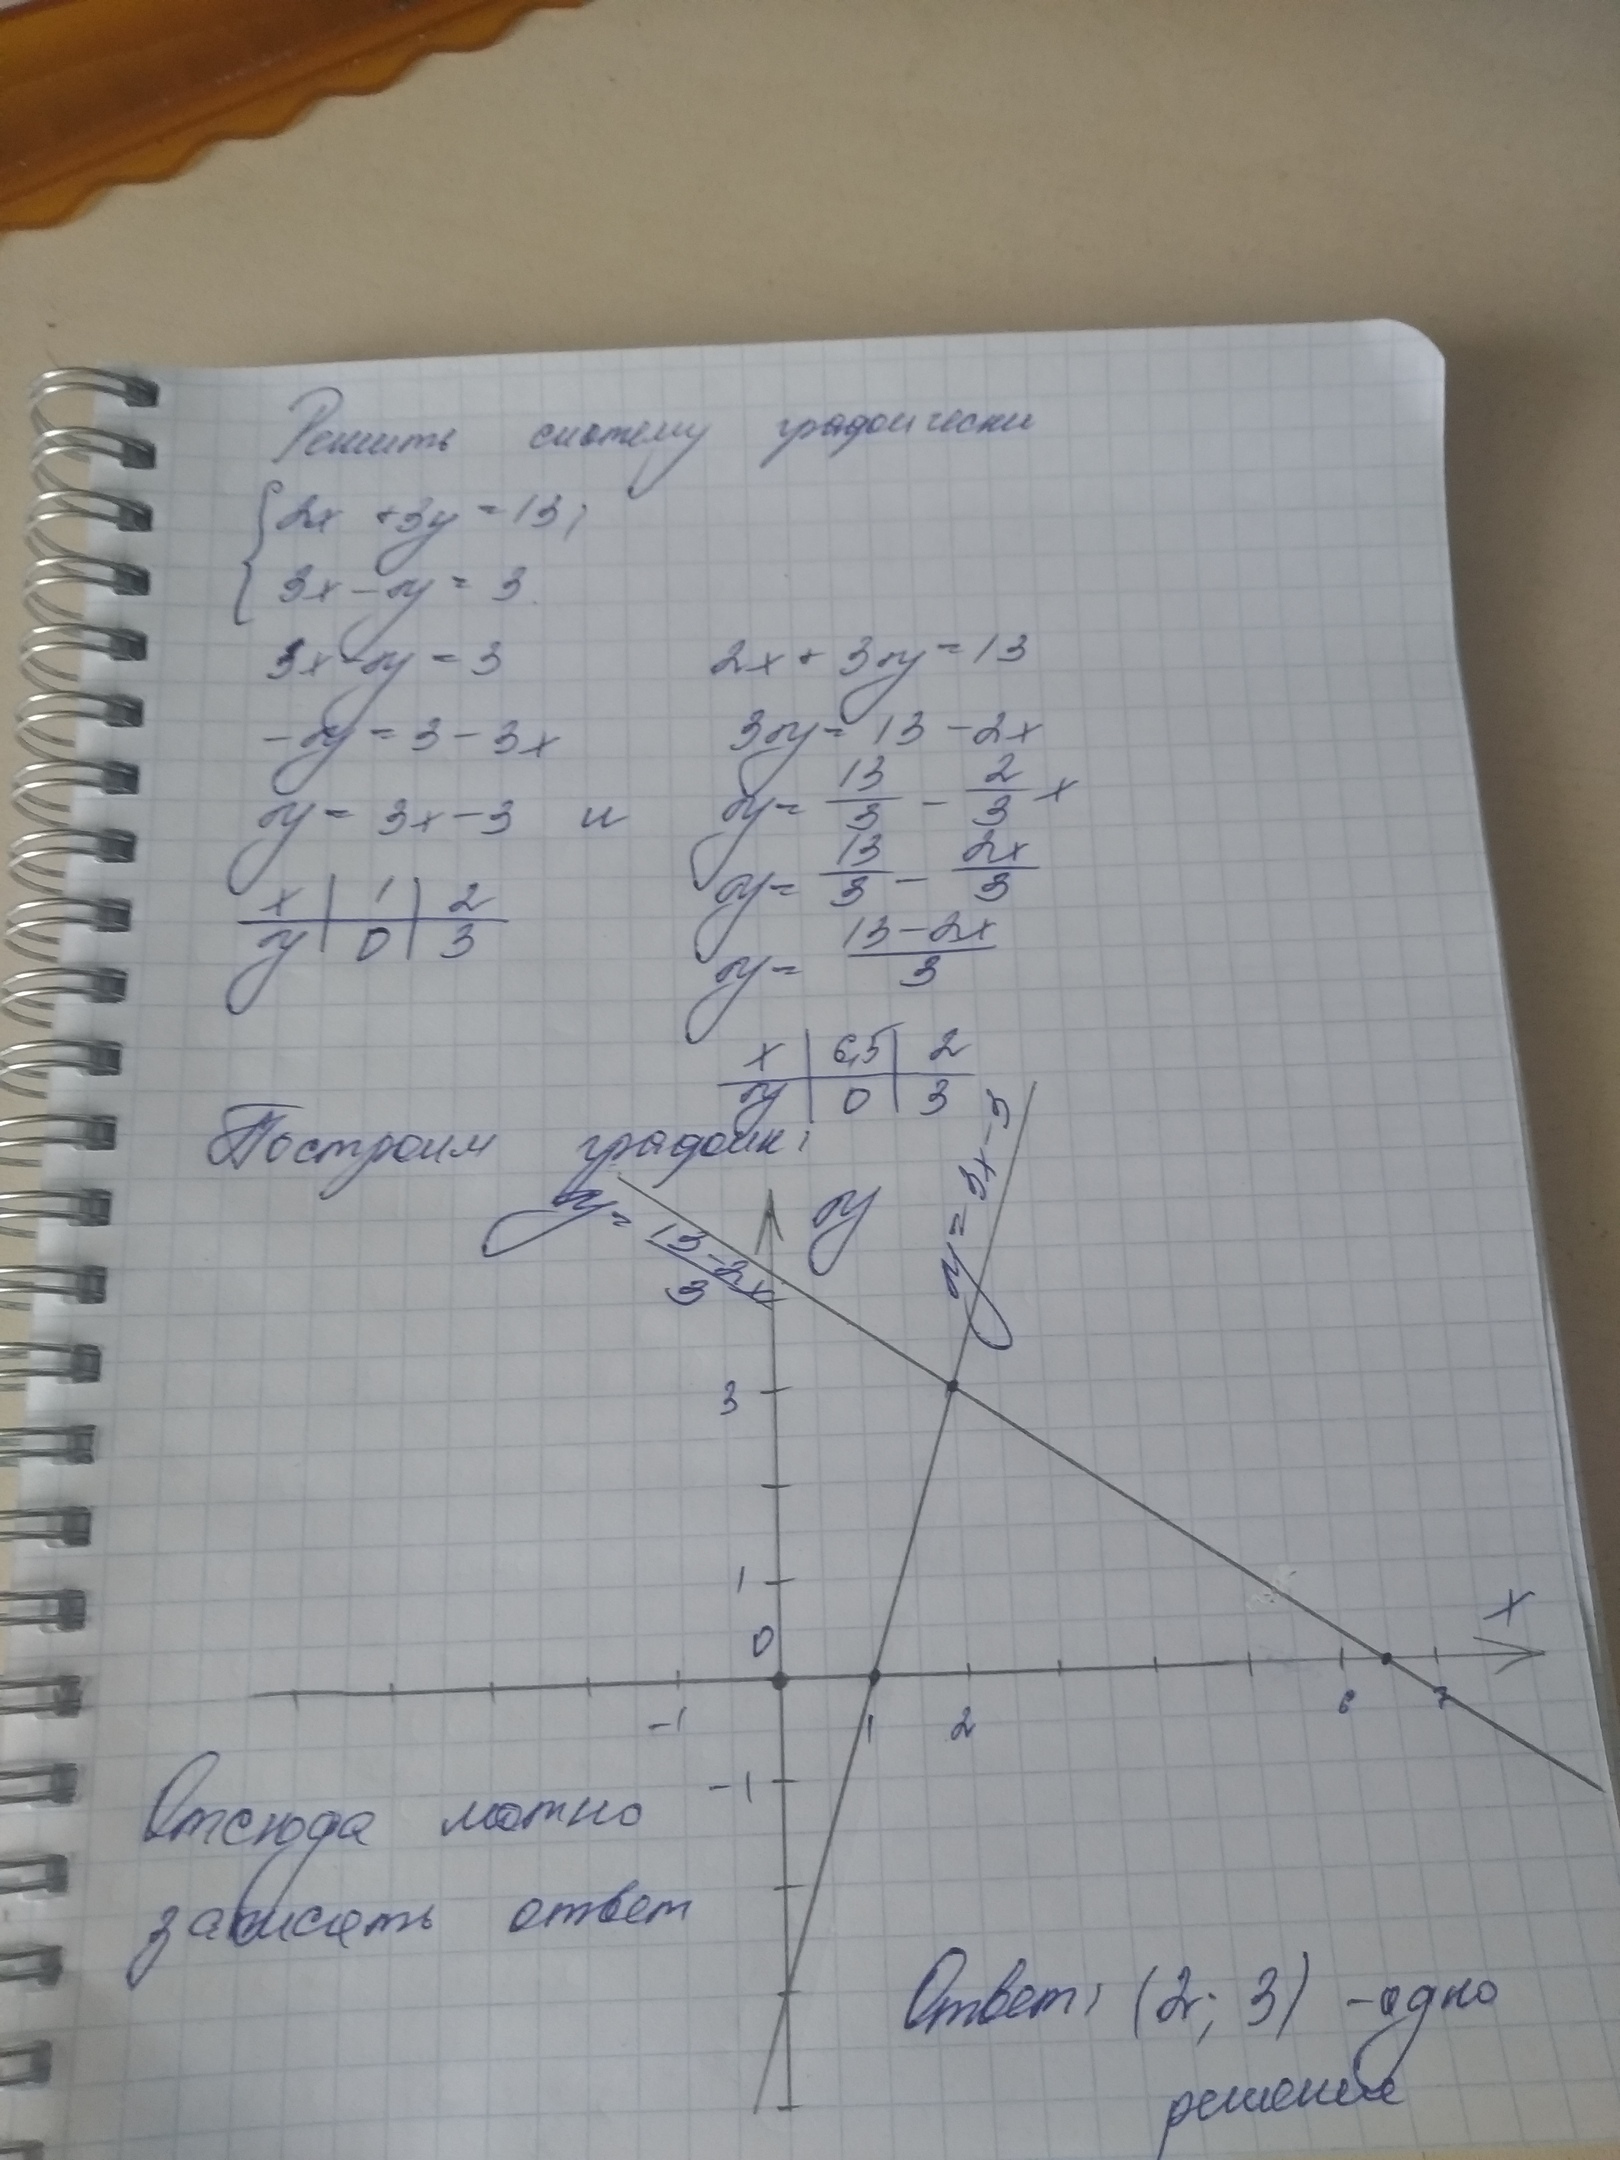 Решить систему графически
{2x + 3y = 13;
3x - y = 3.
3x - y = 3 2x + 3y = 13
-y = 3 - 3x 3y = 13 - 2x
y = 3x - 3 и y = 13/3 - 2/3 x
y = 13/3 - 2x/3
x | 1 | 2
y | 0 | 3
y = (13 - 2x)/3
x | 6,5 | 2
y | 0 | 3
Построим график:
y = (13 - 2x)/3
y
y = 3x - 3
3
1
0
x
-1 1 2 6 7
-1
Отсюда можно
записать ответ
Ответ: (2; 3) - одно
решение